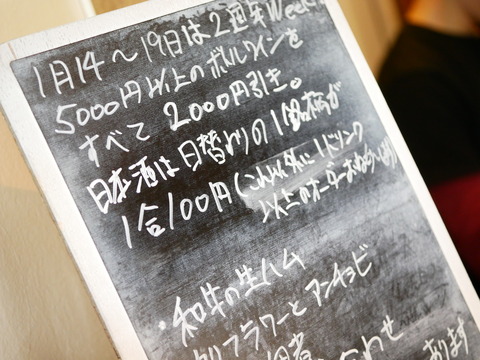 1月14〜19日は2周年Week
5000円以上のボトルワインを
すべて2000円引き。
日本酒は日替わりの1銘柄が
1合100円(これ以外に1ドリンク
以上のオーダーお
・和牛の生ハム
カリフラワーとアンチョビ
わせ
あります